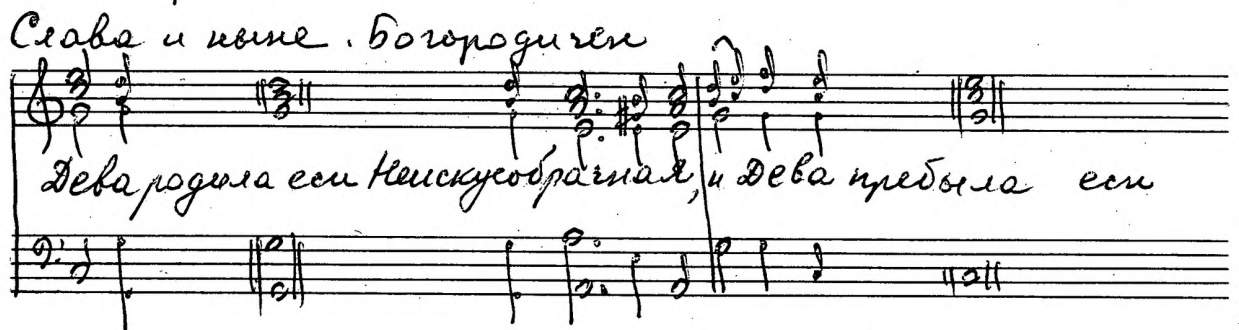 Слава и ныне. Богородичен
Дева родила еси Неискусобрачная, и Дева пребыла еси